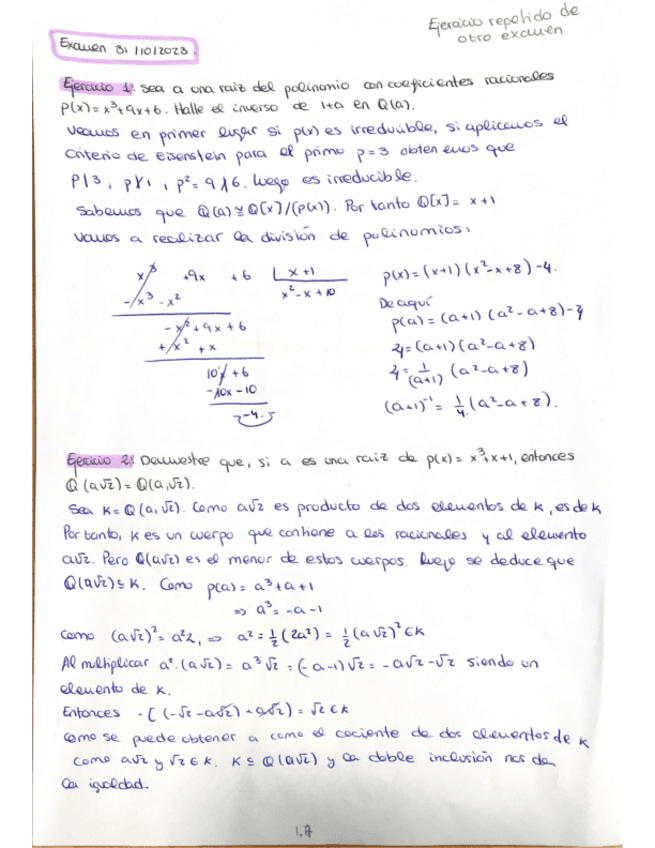 Ejercicio repetido de
otro examen
Examen 31/10/2023.
Ejercicio 1: Sea a una raiz del polinomio con coeficientes racionales
p(x) = x³+9x+6. Halle el inverso de 1+a en Q(a).
Veamos en primer lugar si p(x) es irreducible, si aplicamos el
criterio de Eisenstein para el primo p=3 obtenemos que
p|3, p∤1, p²=9∤6. Luego es irreducible.
Sabemos que Q(a)≅Q[x]/(p(x)). Por tanto Q[x]= x+1
Vamos a realizar la división de polinomios:
x³ +9x +6 | x+1
-x³ -x² x²-x+10
-x²+9x+6
+x² +x
10x+6
-10x-10
-4.
p(x)=(x+1)(x²-x+8)-4.
De aquí
p(a)=(a+1)(a²-a+8)-4
4=(a+1)(a²-a+8)
4=1/(a+1) (a²-a+8)
(a+1)⁻¹= 1/4 (a²-a+8).
Ejercicio 2: Demuestre que, si a es una raiz de p(x)= x³+x+1, entonces
Q(a√2)=Q(a,√2).
Sea K=Q(a,√2). Como a√2 es producto de dos elementos de K, es de K
Por tanto, K es un cuerpo que contiene a los racionales y al elemento
a√2. Pero Q(a√2) es el menor de estos cuerpos. Luego se deduce que
Q(a√2)⊆K. Como p(a)= a³+a+1
⇒ a³=-a-1
Como (a√2)²=a²2, ⇒ a²=1/2(2a²)=1/2(a√2)²∈K
Al multiplicar a²·(a√2)=a³√2=(-a-1)√2=-a√2-√2 siendo un
elemento de K.
Entonces -[(-√2-a√2)+a√2)=√2∈K
Como se puede obtener a como el cociente de dos elementos de K
como a√2 y √2∈K. K⊆Q(a√2) y la doble inclusión nos da
la igualdad.